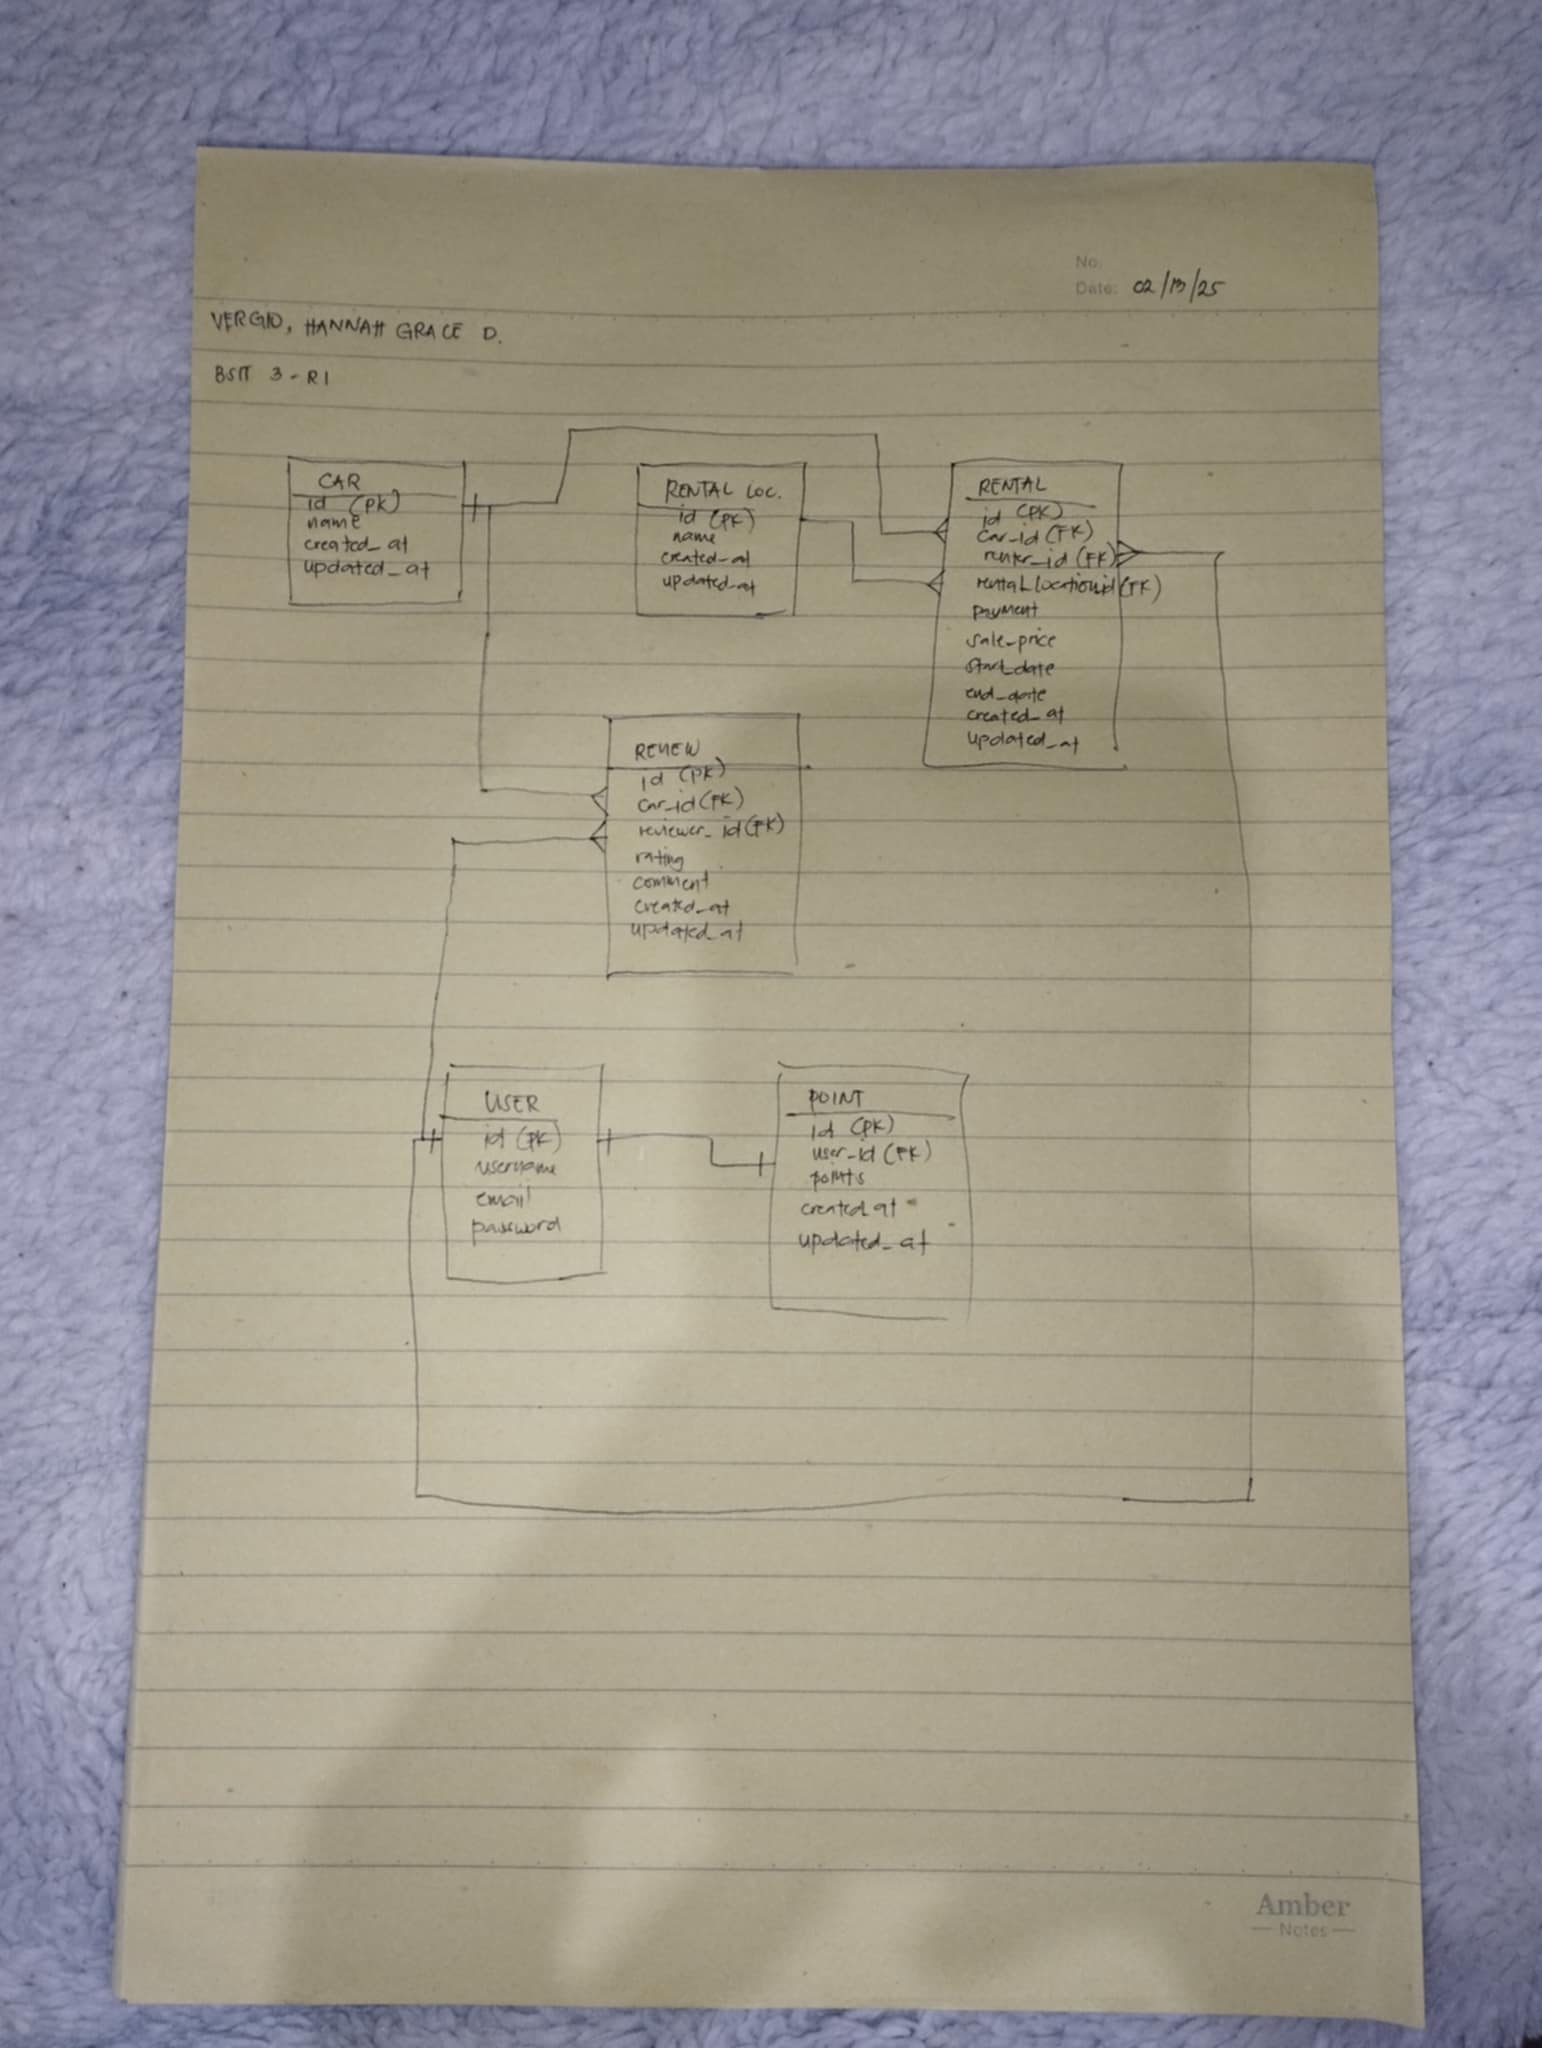 No.
Date: 02/13/25
VERGIO, HANNAH GRACE D.
BSIT 3-R1
CAR
id (PK)
name
created_at
updated_at
RENTAL LOC.
id (PK)
name
created_at
updated_at
RENTAL
id (PK)
car_id (FK)
renter_id (FK)
rental location_id (FK)
payment
sale_price
start_date
end_date
created_at
updated_at
REVIEW
id (PK)
car_id (FK)
reviewer_id (FK)
rating
comment
created_at
updated_at
USER
id (PK)
username
email
password
POINT
id (PK)
user_id (FK)
points
created_at
updated_at
Amber
Notes